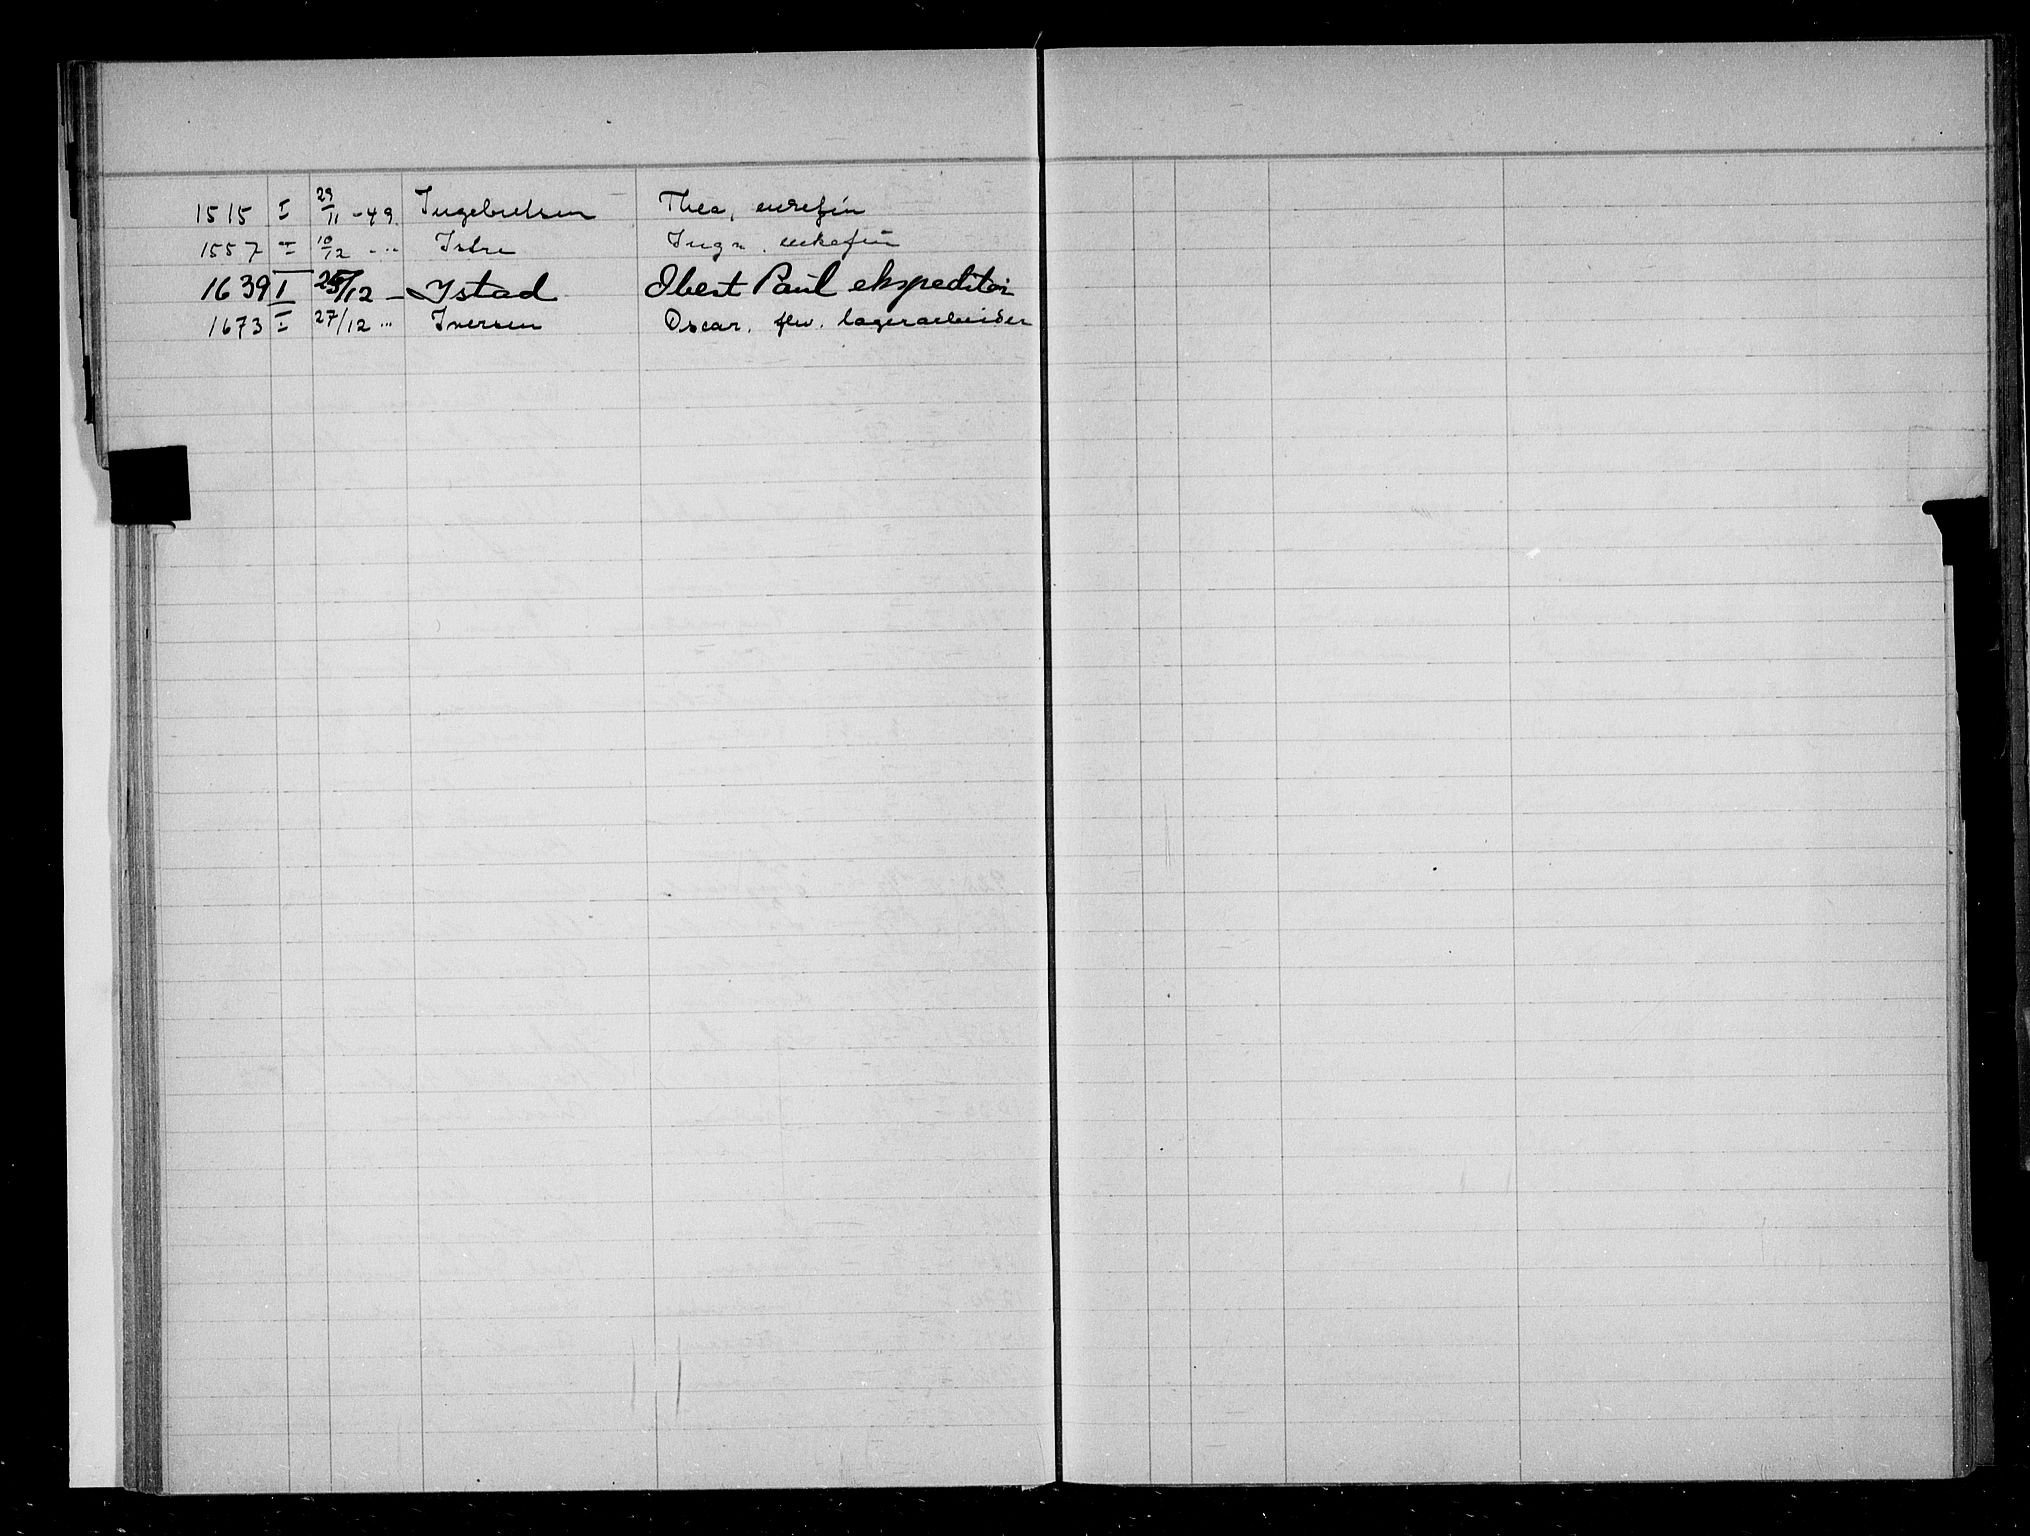 1515 I 29/11 -49. Ingebretsen Thea, enkefru
1557 I 10/12 - .. Istre Inga. enkefru
1639 I 25/12 - Ystad Obert Paul ekspeditør
1673 I 27/12 ... Iversen Oscar. flv. lagerarbeider